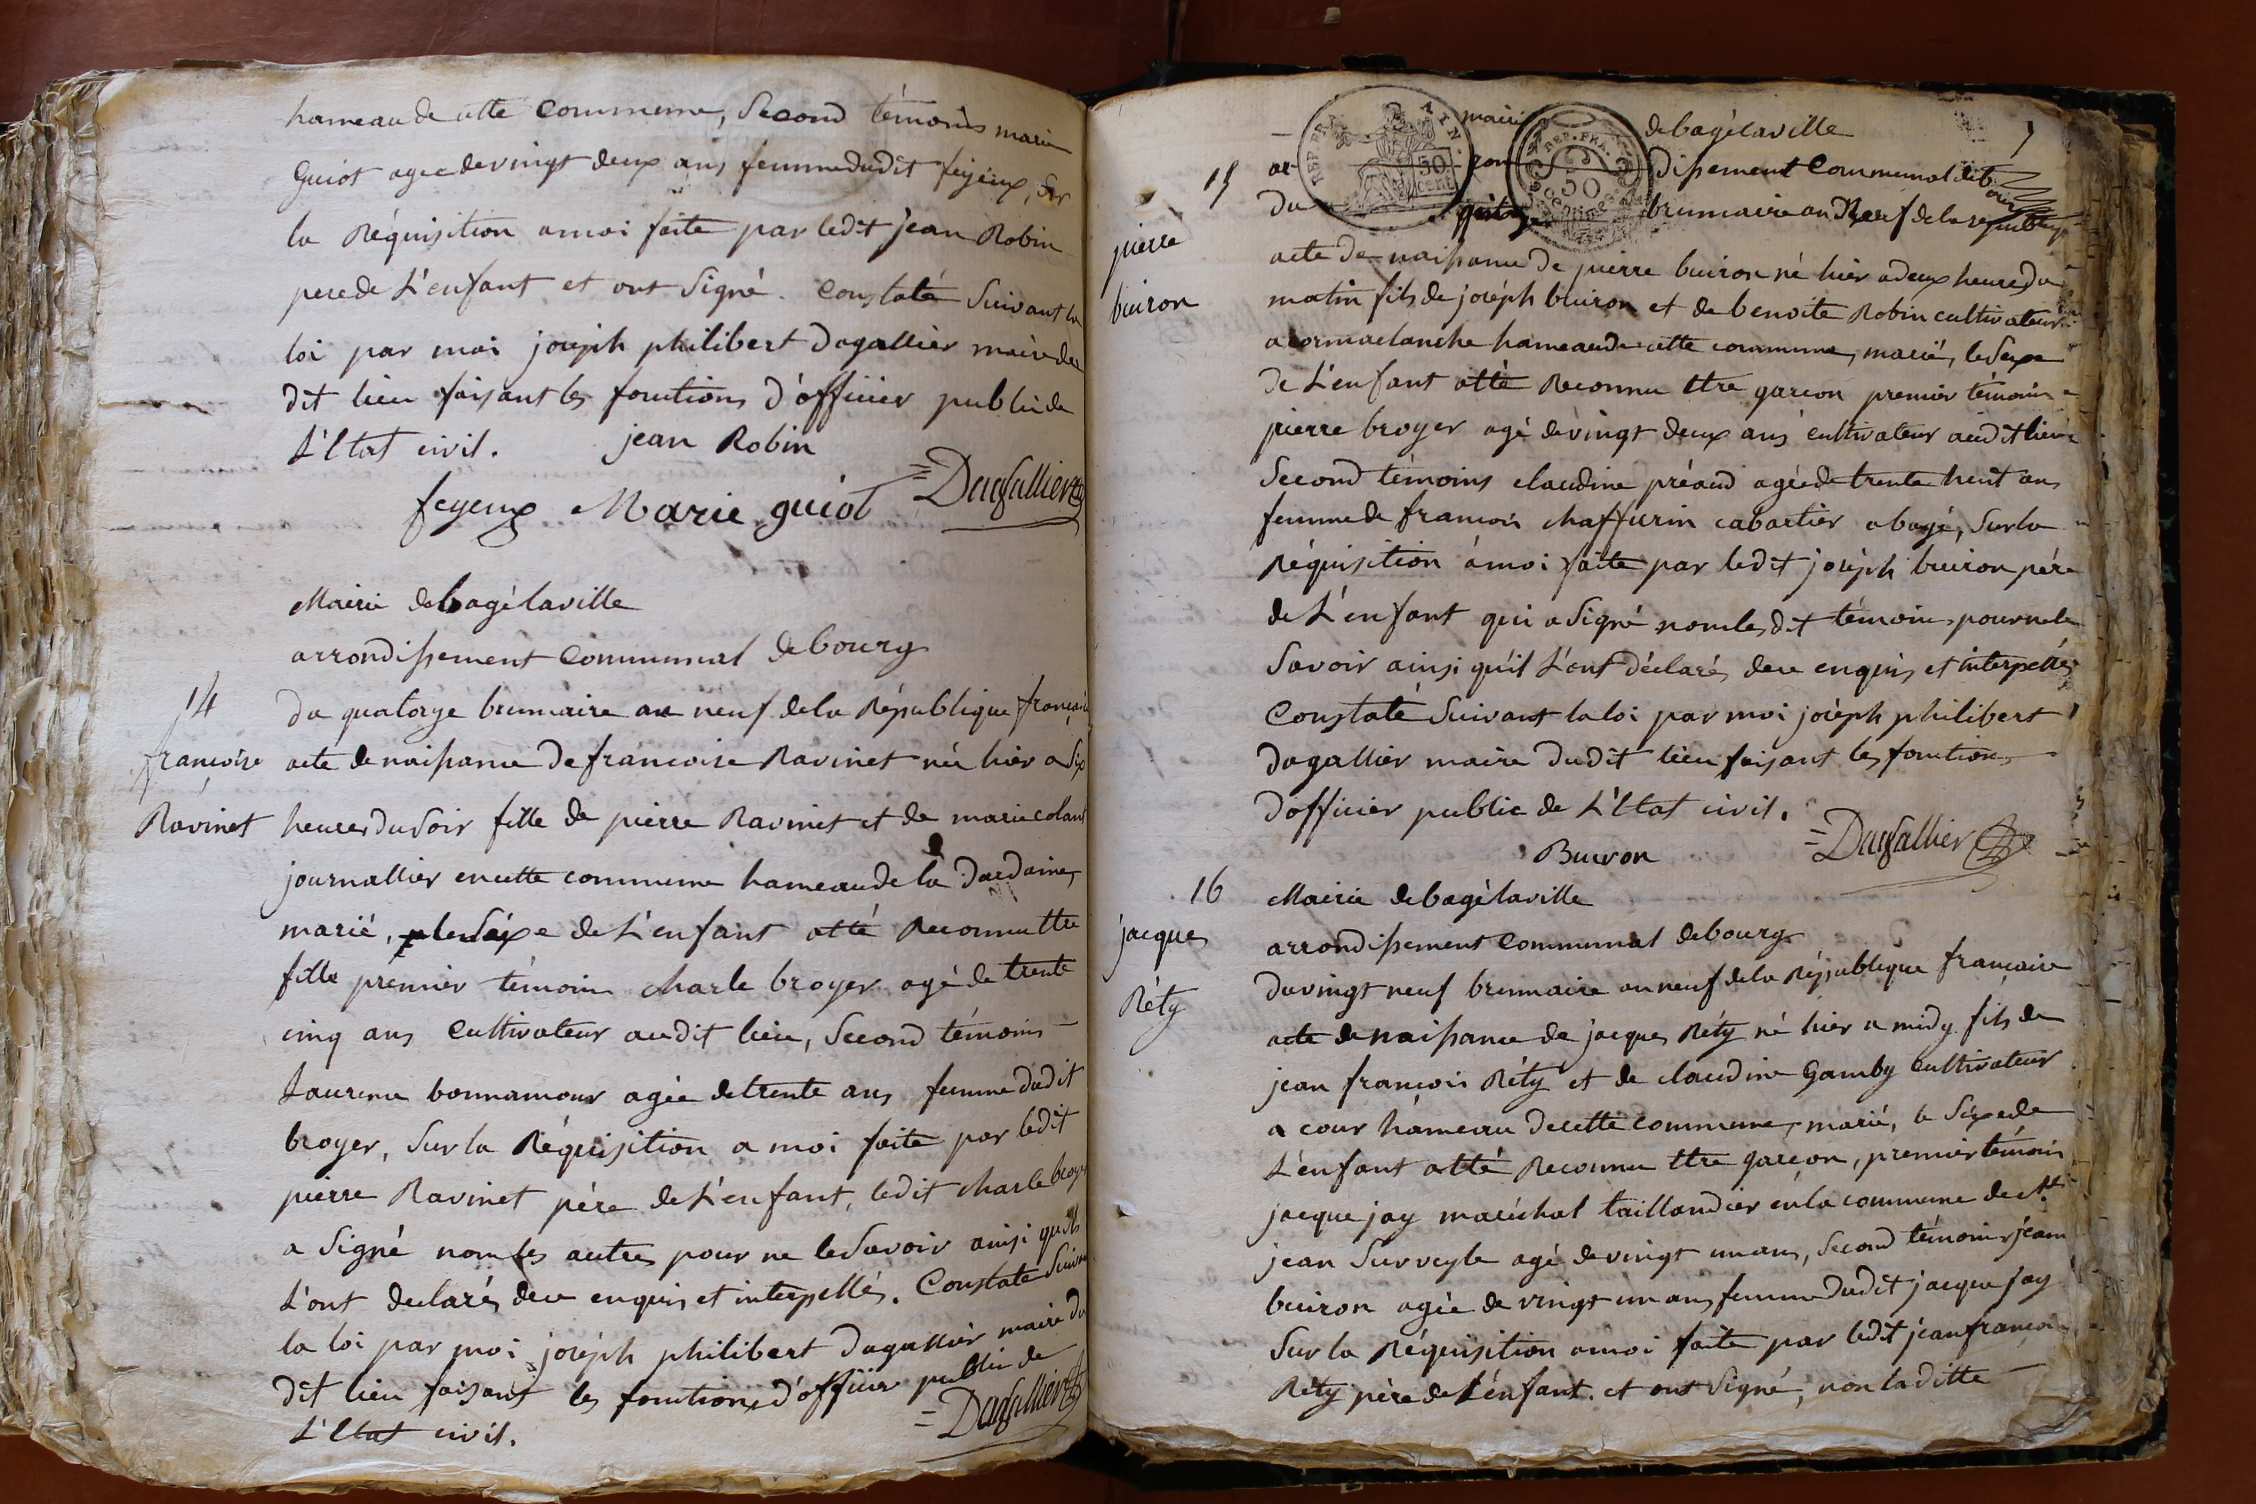 hameau de cette Commune, Second témoins marie
Guiot agée de vingt deux ans femme dudit feyeux, Sur
la Réquisition a moi faite par ledit jean Robin
pere de L'enfant et ont Signé. Constaté Suivant la
loi par moi joseph philibert Dagallier maire du
dit lieu faisant les fonctions d'officier public de
L'Etat civil. jean Robin
feyeux Marie guiot Dagallier
Mairie de bagélaville
arrondissement Communal de bourg
14
du quatorze brumaire an neuf de la République francaise
francoise
acte de naissance de francoise Ravinet née hier a Six
Ravinet
heures du Soir fille de pierre Ravinet et de marie coland
journallier en cette commune hameau de la
marié, le Sexe de L'enfant atté Reconnu ttre
fille premier témoins charle broyer agé de trente
cinq ans Cultivateur audit lieu, Second témoins
Laurence bonnamour agée de trente ans femme dudit
broyer, Sur la Réquisition a moi faite par ledit
pierre Ravinet père de L'enfant, ledit charle broyer
a Signé non les autres pour ne le Savoir ainsi qu'ils
L'ont declarés deue enquis et interpellés. Constaté Suivant
la loi par moi joséph philibert Dagallier maire du
dit lieu faisant les fonctions d'officier public de
L'Etat civil. Dagallier
REP. FRA. 50 cent.
REP. FRA. 50
mairie de bagélaville 7
15
ar ron dissement Communal de bourg
du brumaire an Neuf de la republique
pierre
buiron
acte de naissance de pierre buiron né hier a deux heures du
matin fils de joséph buiron et de benoite Robin cultivateur
a hameau de cette commune, marié, le Sexe
de L'enfant atté Reconnu ttre garcon premier témoins
pierre broyer agé de vingt deux ans cultivateur audit lieu
Second témoins claudine préaud agée de trente huit ans
femme de francois chaffurin cabartier a bagé, Sur la
Réquisition à moi faite par ledit joséph buiron père
de L'enfant qui a Signé non les dit témoins pour ne le
Savoir ainsi qu'il L'ont déclarés deue enquis et interpellés
Constaté Suivant la loi par moi joséph philibert
dagallier maire dudit lieu faisant les fonctions
d'officier public de L'Etat civil.
Buiron Dagallier
16
Mairie de bagélaville
jacques
arrondissement Communal de bourg
Réty
du vingt neuf brumaire an neuf de la République francaise
acte de naissance de jacques Réty né hier a midy fils de
jean francois Réty et de claudine Gamby Cultivateur
a cour hameau de cette commune, marié, le Sexe de
L'enfant atté Reconnu ttre garcon, premier témoin
jacque jay maréchal taillandier en la commune de St
jean Surveyle agé de vingt un ans, Second témoins jeanne
buiron agée de vingt un ans femme dudit jacque jay
Sur la Réquisition a moi faite par ledit jean francois
Réty père de L'enfant. et ont Signé, non laditte